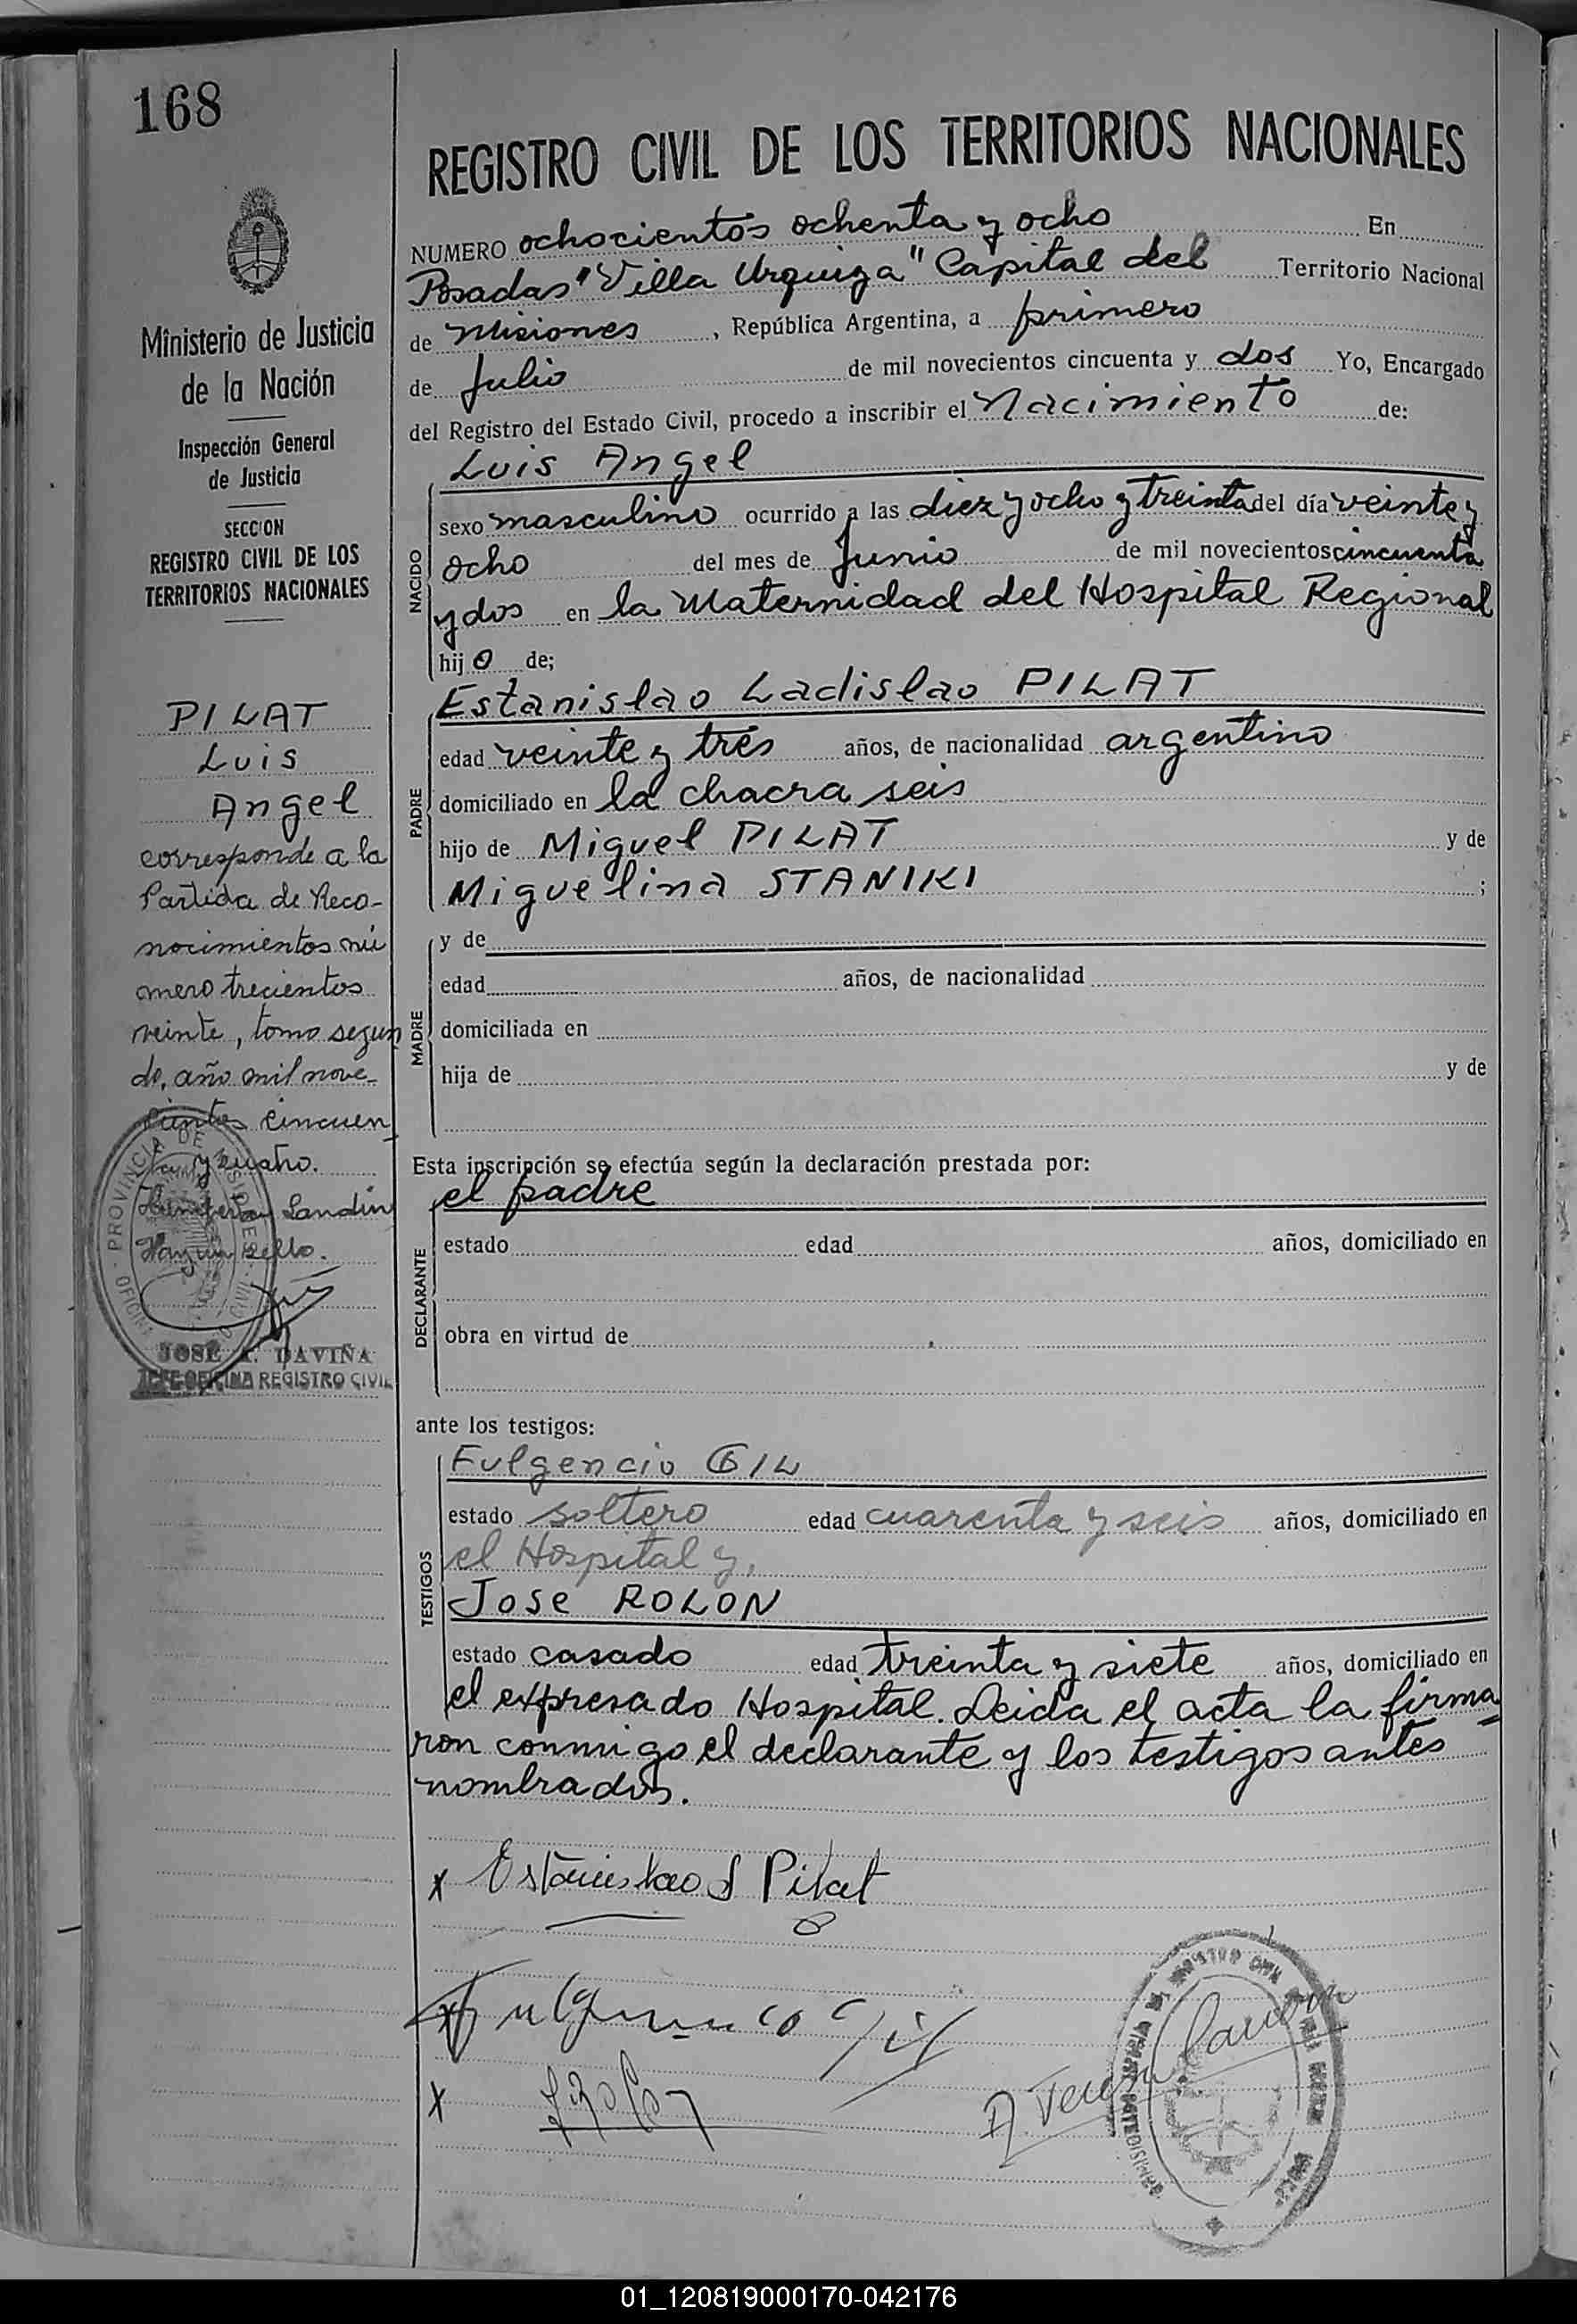 168
Ministerio de Justicia
de la Nación
Inspección General
de Justicia
SECCION
REGISTRO CIVIL DE LOS
TERRITORIOS NACIONALES
PILAT
Luis
Angel
corresponde a la
Partida de Reco-
nocimientos nú
mero trecientos
veinte, tomo segun
do, año mil nove-
cientos cincuen
ta y cuatro.
Landin
JOSE A. DAVIÑA
JEFE OFICINA REGISTRO CIVIL
PROVINCIA DE MISIONES
REGISTRO CIVIL DE LOS TERRITORIOS NACIONALES
NUMERO ochocientos ochenta y ocho En
Posadas "Villa Urquiza" Capital del Territorio Nacional
de Misiones, República Argentina, a primero
de Julio de mil novecientos cincuenta y dos Yo, Encargado
del Registro del Estado Civil, procedo a inscribir el Nacimiento de:
NACIDO
Luis Angel
sexo masculino ocurrido a las diez y ocho y treinta del día veinte y
ocho del mes de Junio de mil novecientos cincuenta
y dos en la Maternidad del Hospital Regional
hijo de;
PADRE
Estanislao Ladislao PILAT
edad veinte y tres años, de nacionalidad argentino
domiciliado en la chacra seis
hijo de Miguel PILAT y de
Miguelina STANIKI ;
MADRE
y de
edad años, de nacionalidad
domiciliada en
hija de y de
Esta inscripción se efectúa según la declaración prestada por:
DECLARANTE
el padre
estado edad años, domiciliado en
obra en virtud de
ante los testigos:
TESTIGOS
Fulgencio GIL
estado soltero edad cuarenta y seis años, domiciliado en
el Hospital y,
Jose ROLON
estado casado edad treinta y siete años, domiciliado en
el expresado Hospital. Leida el acta la firma
ron conmigo el declarante y los testigos antes
nombrados.
x Estanislao L Pilat
x Fulgencio Gil
x
01_120819000170-042176